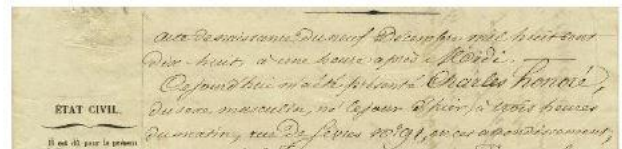 acte de naissance du neuf Décembre mil huit cent
dix-huit, à une heure après Midi.
Cejourd'hui m'a été présenté Charles honoré,
du sexe masculin, né le jour d'hier, à trois heures
ÉTAT CIVIL.
du matin, rue de sèvres no 91, en cet arrondissement,
Il est dû pour le présent